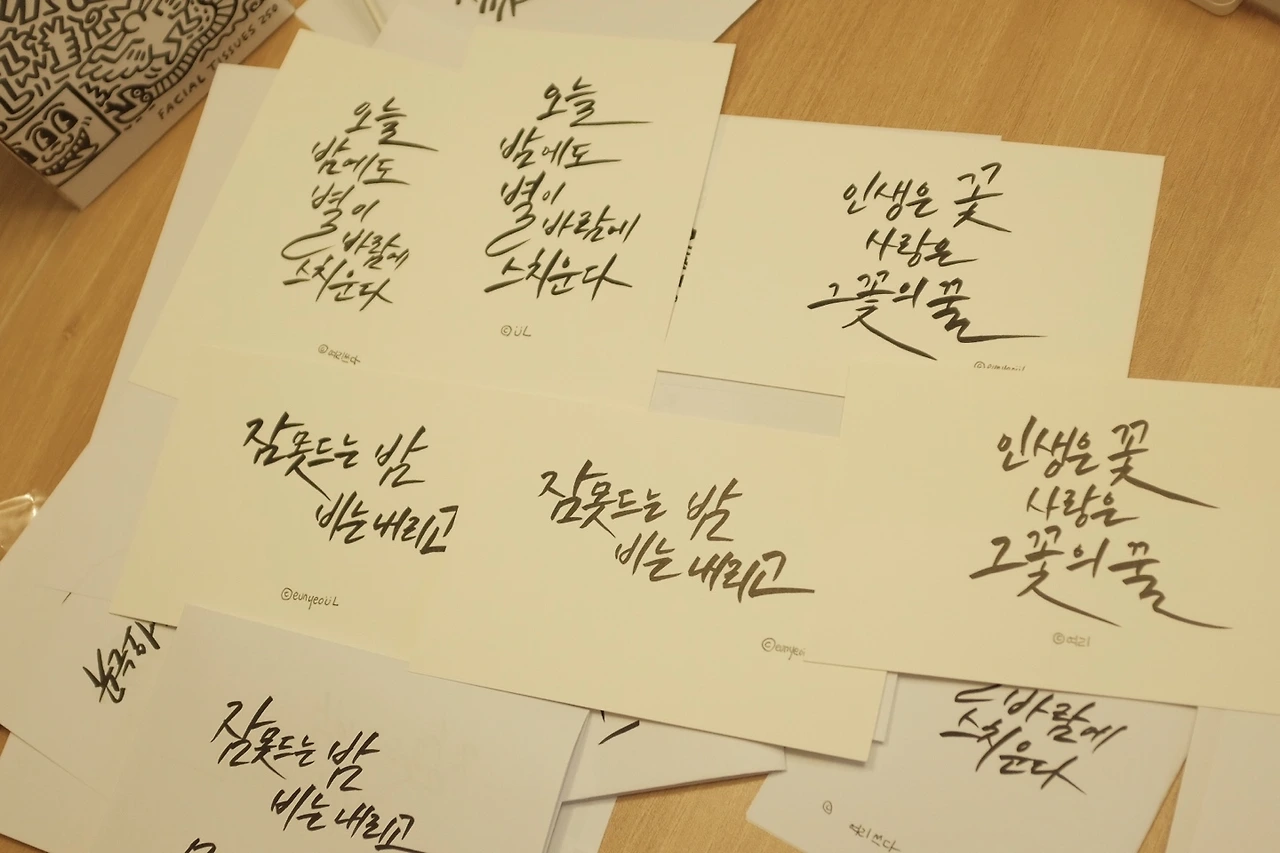 FACIAL TISSUES 250
오늘
밤에도
별이
바람에
스치운다
©여리쓰다
오늘
밤에도
별이
바람에
스치운다
©üL
인생은 꽃
사랑은
그 꽃의 꿀
잠 못 드는 밤
비는 내리고
©eunyeoüL
잠 못 드는 밤
비는 내리고
©eunyeo
인생은 꽃
사랑은
그 꽃의 꿀
©여리
잠 못 드는 밤
비는 내리고
바람에
스치운다
©
여리쓰다